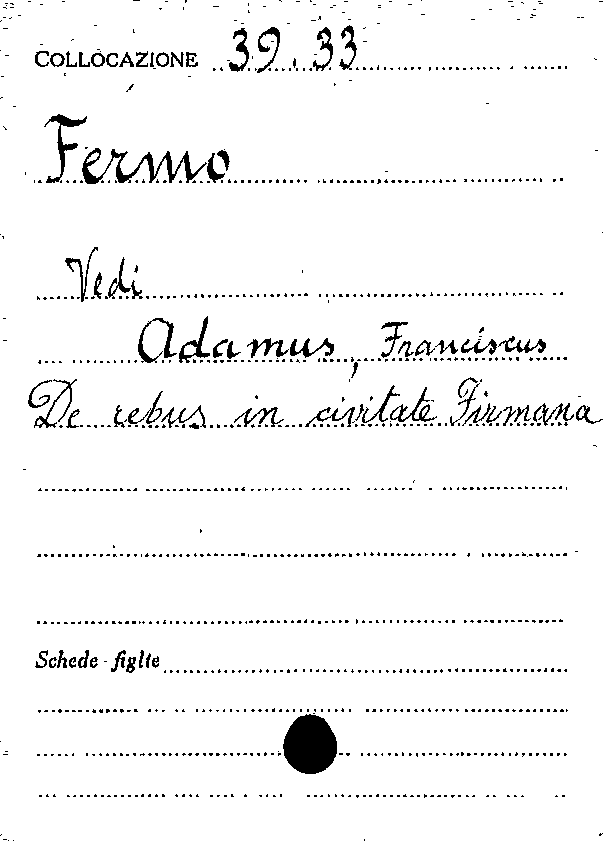 COLLOCAZIONE 39.33
Fermo
Vedi
Adamus, Franciscus
De rebus in civitate Firmana
Schede - figlie